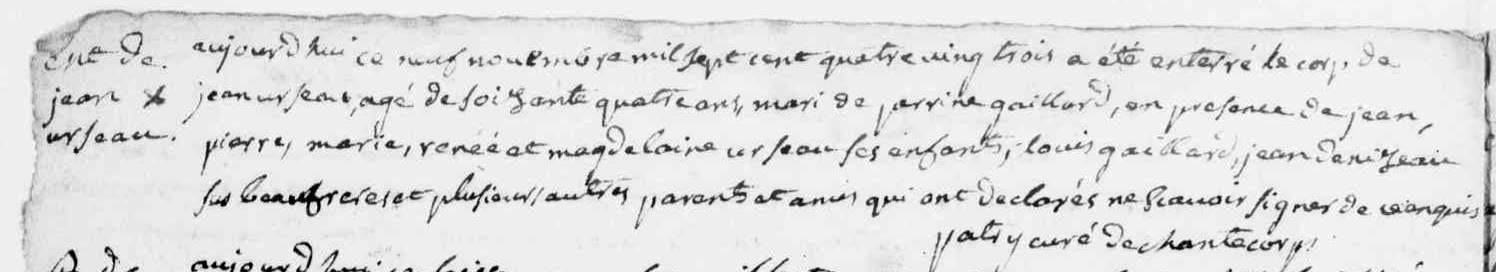 Ent de.
jean
urseau.
aujourd hui ce neuf novembre mil sept cent quatre ving trois a été enterré le corp de
jean urseau, agé de soizante quatre ans, mari de perrine gaillard, en presence de jean,
pierre, marie, renée et magdelaine urseau ses enfants, louis gaillard, jean denizeau
ses beaufreres et plusieurs autres parents et amis qui ont declarés ne scavoir signer de ce enquis
patry curé de chantecorps
aujourd hui